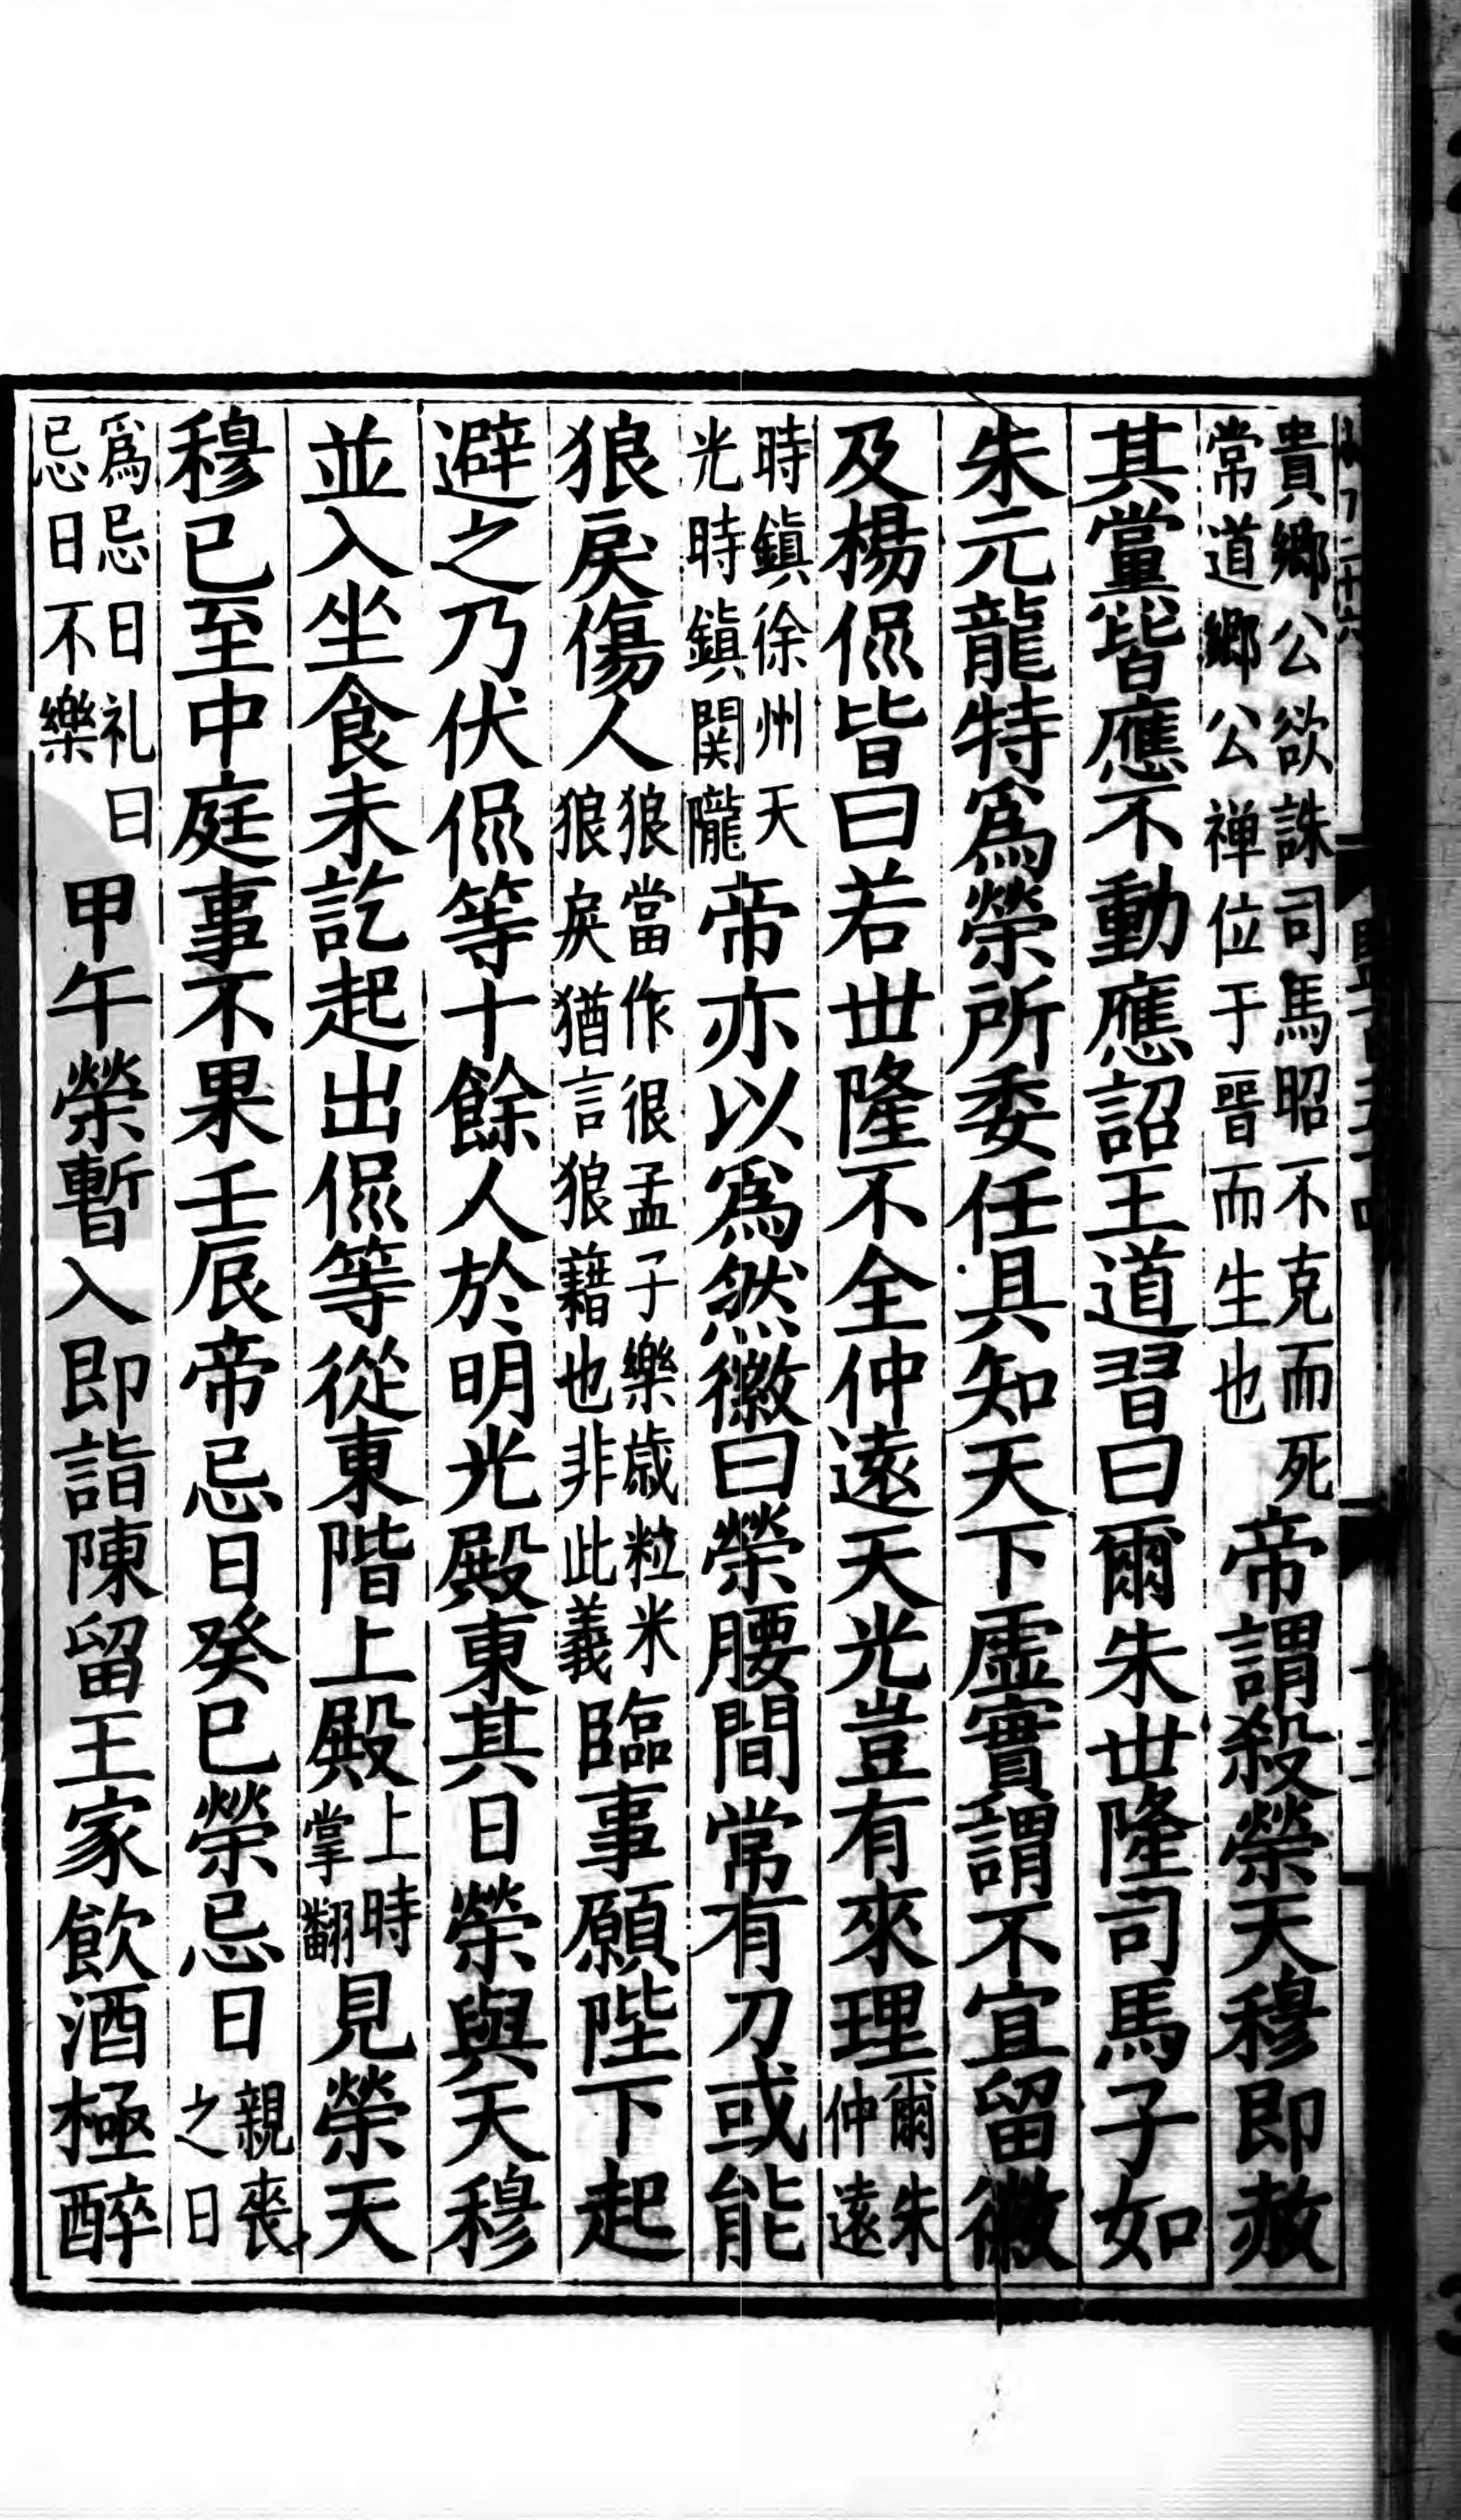 貴鄉公欲誅司馬昭不克而死常道鄉公禅位于晋而生也帝謂殺榮天穆即赦
其黨皆應不動應詔王道習曰爾朱世隆司馬子如
朱元龍特爲榮所委任具知天下虛實謂不宜留徽
及楊侃皆曰若世隆不全仲遠天光豈有來理爾朱仲遠
時鎮徐州天光時鎮関隴帝亦以爲然徽曰榮腰間常有刀或能
狼戾傷人狼當作很孟子樂歳粒米狼戾猶言狼藉也非此義臨事願陛下起
避之乃伏侃等十餘人於明光殿東其日榮與天穆
並入坐食未訖起出侃等從東階上殿上時掌翻見榮天
穆已至中庭事不果壬辰帝忌日癸巳榮忌日親喪之日
爲忌日礼曰忌日不樂甲午榮暫入即詣陳留王家飲酒極醉